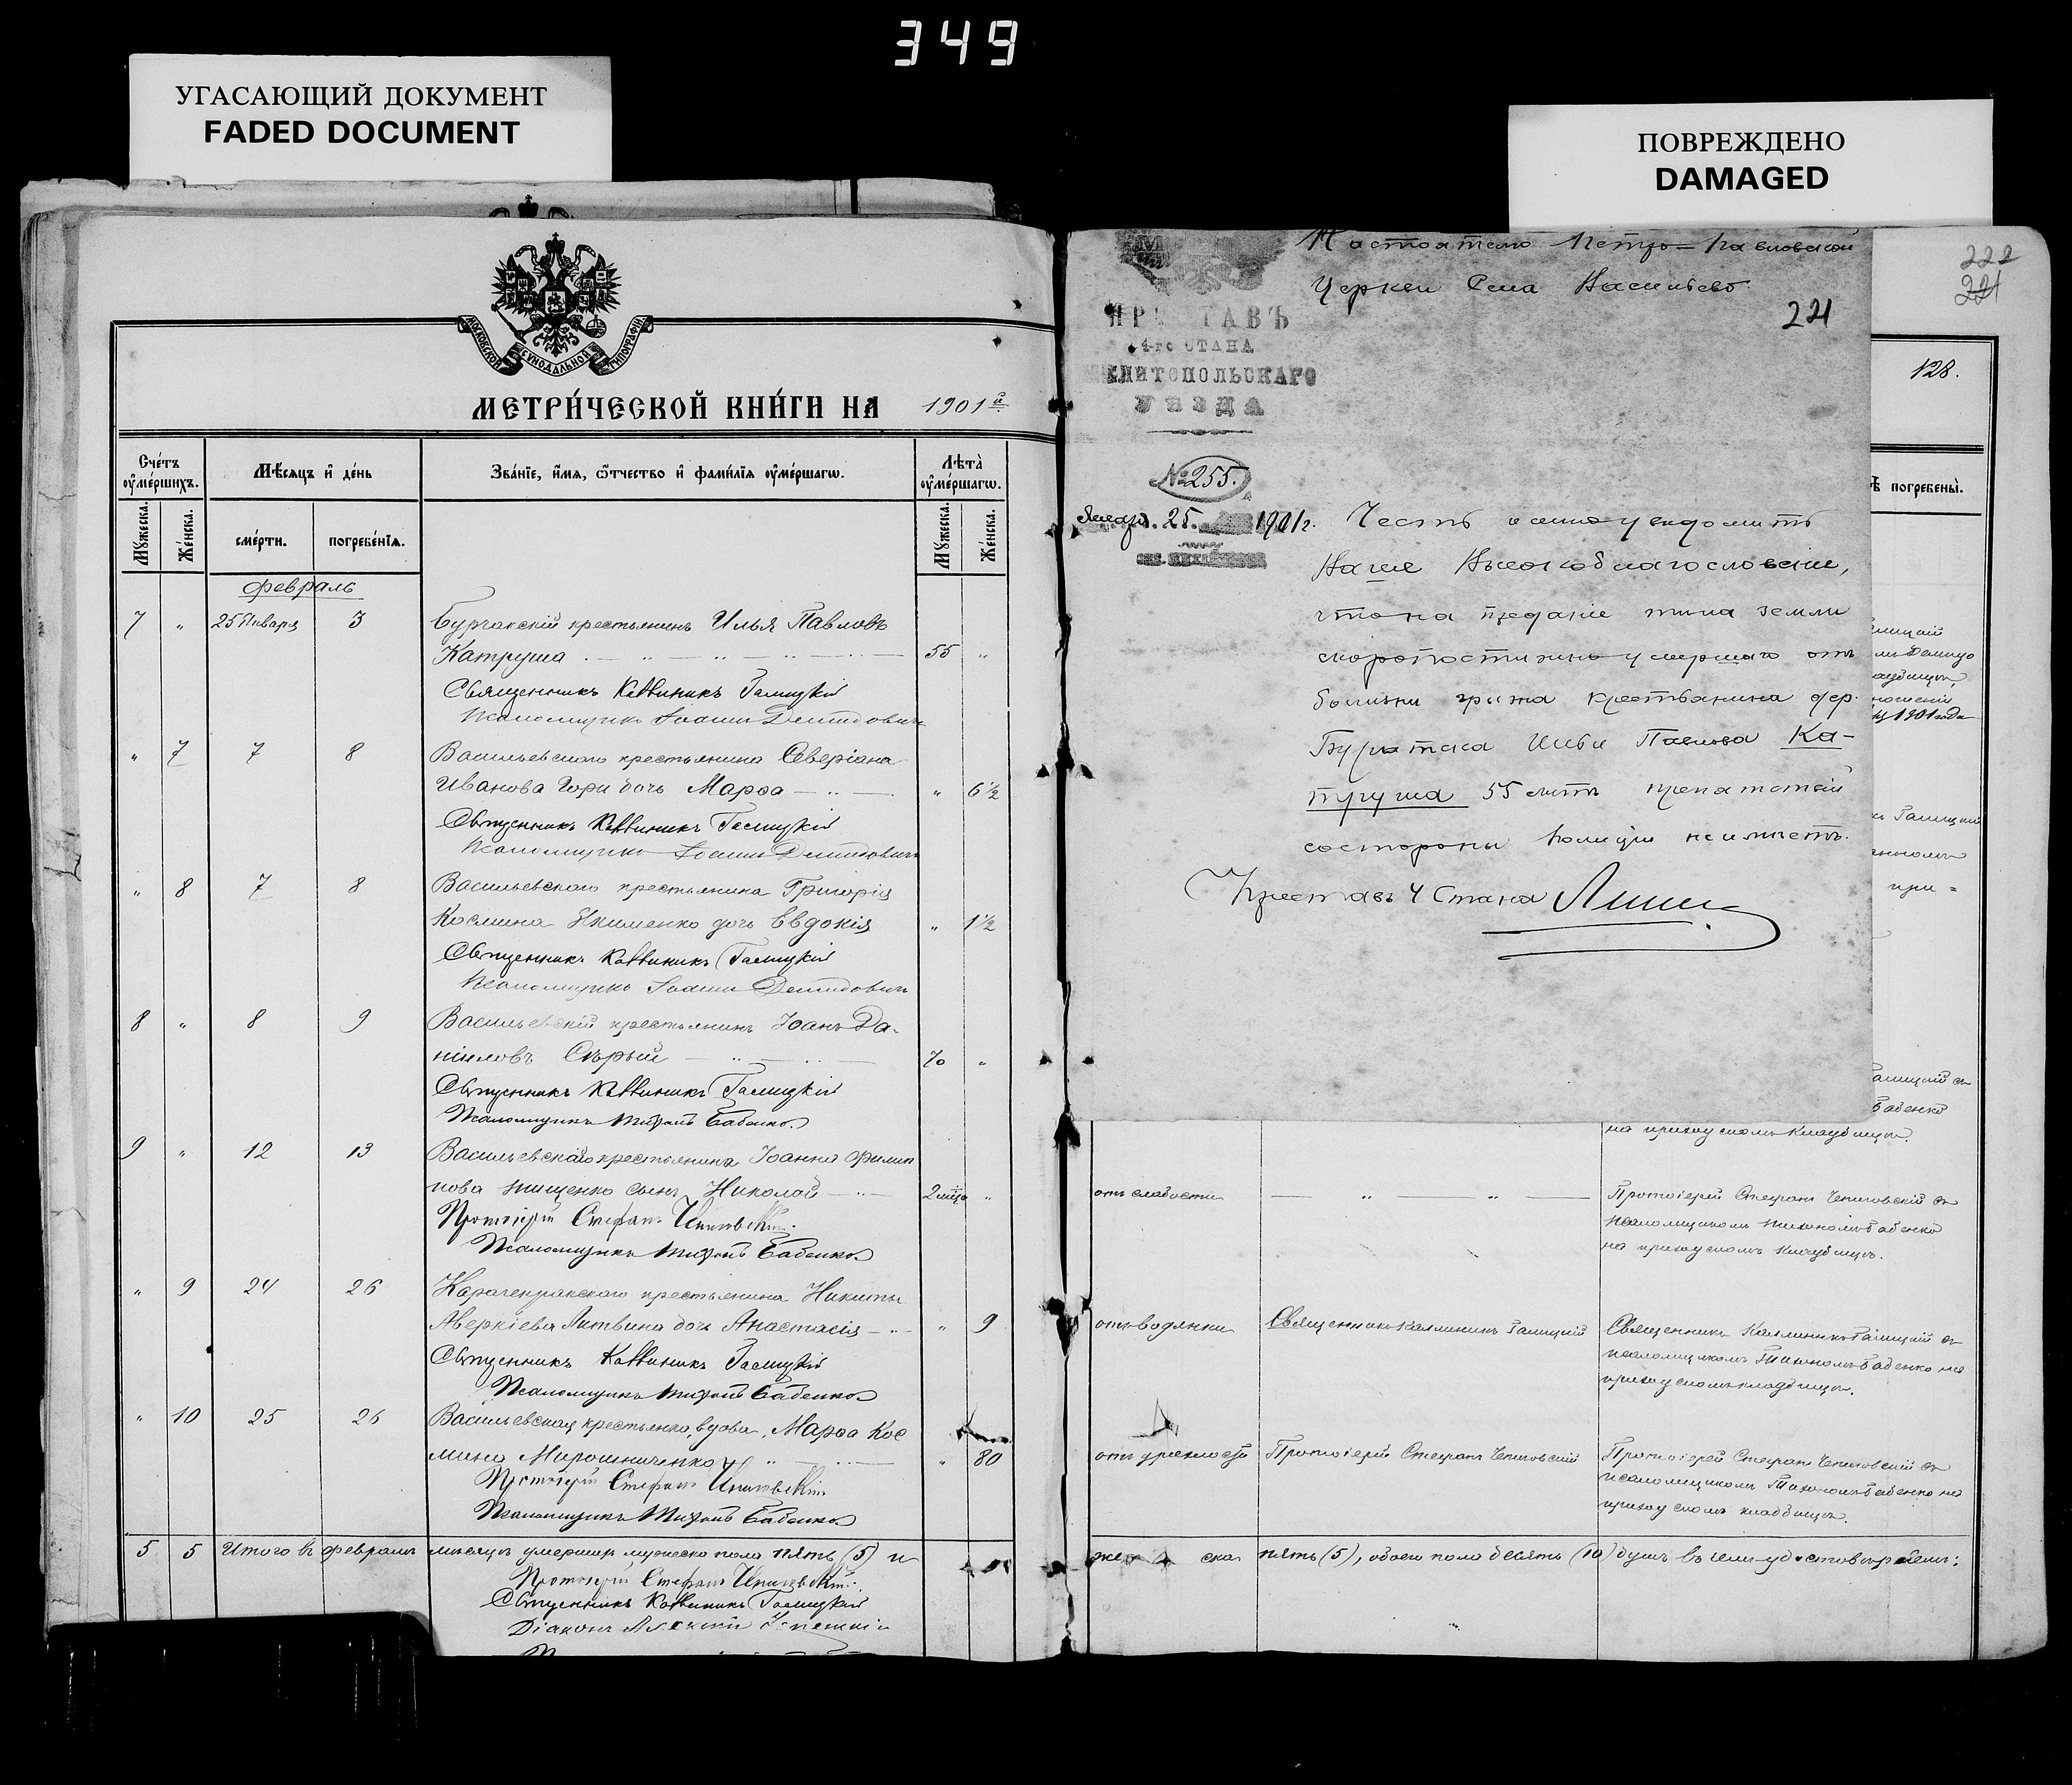 349
УГАСАЮЩИЙ ДОКУМЕНТ
FADED DOCUMENT
ПОВРЕЖДЕНО
DAMAGED
МОСКОВСКОЙ СѴНОДАЛЬНОЙ ТИПОГРАФІИ
МЕТРИ́ЧЕСКОЙ КНИ́ГИ НА 1901й
Сче́тъ ᲂу҆ме́ршихъ.
Мѣ́сяцъ и҆ де́нь
Зва́нїе, и҆́мя, ѻ҆́тчество и҆ фами́лїя ᲂу҆ме́ршагѡ.
Лѣ́та ᲂу҆ме́ршагѡ.
Мꙋ́жеска.
Же́нска.
сме́рти.
погребе́нїя.
Мꙋ́жеска.
Же́нска.
Февраль
7 " 25 Января 3 Бурчакскій крестьянинъ Илья Павловъ
Катруша 55 "
Священникъ Каллиникъ Галицкій
Псаломщикъ Іоаннъ Демидовичъ
" 7 7 8 Васильевскаго крестьянина Северіана
Иванова дочь Марѳа " 6½
Священникъ Каллиникъ Галицкій
Псаломщикъ Іоаннъ Демидовичъ
" 8 7 8 Васильевскаго крестьянина Григорія
Космина Якименко дочь Евдокія " 1½
Священникъ Каллиникъ Галицкій
Псаломщикъ Іоаннъ Демидовичъ
8 " 8 9 Васильевскій крестьянинъ Іоанъ Да-
ніиловъ Сѣрый 70 "
Священникъ Каллиникъ Галицкій
Псаломщикъ Тихонъ Бабенко
9 " 12 13 Васильевскаго крестьянина Іоанна Филип
пова Тищенко сынъ Николай 2 "
Протоіерей Стефанъ
Псаломщикъ Тихонъ Бабенко
" 9 24 26 Карачекракского крестьянина Никиты
Аверкіева Литвина дочь Анастасія " 9
Священникъ Каллиникъ Галицкій
Псаломщикъ Тихонъ Бабенко
" 10 25 26 Васильевская крестьянка, вдова, Марѳа Кос
мина Мирошниченко " 80
Протоіерей Стефанъ
Псаломщикъ Тихонъ Бабенко
5 5 Итого въ февралѣ мѣсяцѣ умерших мужеска пола пять (5) и
Протоіерей Стефанъ
Священникъ Каллиникъ Галицкій
Діаконъ
Настоятелю Петро-Павловской
Церкви Села Васильево
221
ПРИСТАВЪ
4-го СТАНА
МЕЛИТОПОЛЬСКАГО
УѢЗДА
№ 255.
Январ. 25. 1901 г.
Честь имѣю увѣдомить
Ваше Высокоблагословеніе,
что на преданіе тѣла земли
скоропостижно умершаго отъ
болѣзни грыжа крестьянина дер.
Бурчака Ильи Павлова Ка-
труша 55 лѣтъ препятствій
со стороны полиціи не имѣетъ.
Приставъ 4 Стана
222
221
128.
погребены̀.
1901 года
при-
Бабенко
на приходскомъ кладбищѣ.
отъ слабости
Протоіерей Стефанъ
псаломщикомъ Тихономъ Бабенко
на приходскомъ кладбищѣ.
отъ водянки Священникъ Каллиникъ Галицкій Священникъ Каллиникъ Галицкій съ
псаломщикомъ Тихономъ Бабенко на
приходскомъ кладбищѣ.
отъ дряхлости Протоіерей Стефанъ Протоіерей Стефанъ
псаломщикомъ Тихономъ Бабенко на
приходскомъ кладбищѣ.
женска пять (5), обоего пола десять (10) душъ